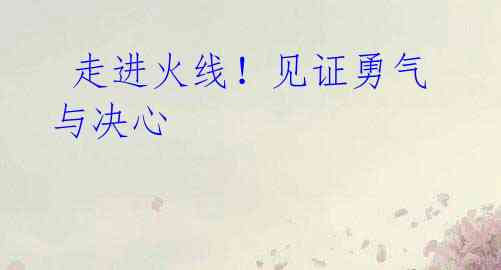 走进火线！见证勇气
与决心